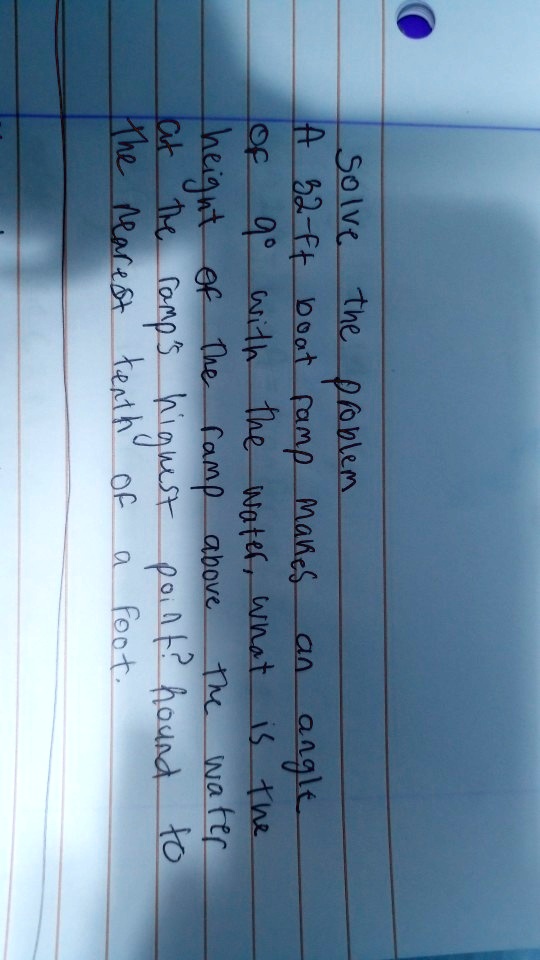 Solve the problem
A 32-ft boat ramp makes an angle
of 9° with the water, what is the
height of the ramp above the water
at the ramp's highest point? Round to
the nearest tenth of a foot.